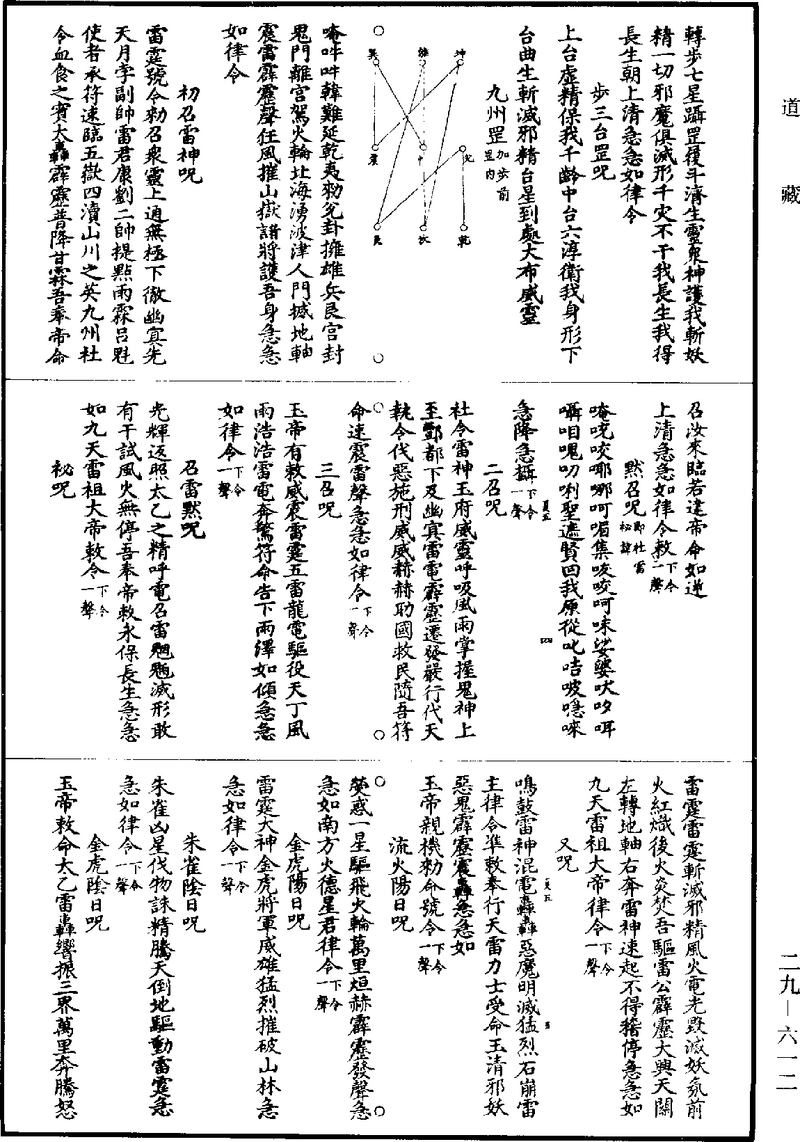 道藏
二九—六一二
轉步七星躡罡履斗濟生靈衆神護我斬妖
精一切邪魔俱滅形千灾不干我長生我得
長生朝上清急急如律令
步三台罡呪
上台虛精保我千齡中台六淳衛我身形下
台曲生斬滅邪精台星到處大布威靈
九州罡加步前罡內
坤 離 巽
兌 中 震
乾 坎 艮
唵吽吽韓難延乾夷勑兌卦擁雄兵艮宮封
鬼門離宮駕火輪北海湧波津人門撼地軸
震雷霹靂聲任風摧山嶽諸將護吾身急急
如律令
初召雷神呪
雷霆號令勑召衆靈上通無極下徹幽冥先
天月孛副帥雷君康劉二帥提點雨霖呂魁
使者承符速臨五嶽四瀆山川之英九州社
令血食之賓大轟霹靂普降甘霖吾奉帝命
召汝來臨若違帝命如逆
上清急急如律令敕下令一聲
默召呪即社雷秘諱
唵吮咬㖿哪呵嘪集唆咬呵味娑婆吠哆咡
囁呾嘿叨唎聖遮賢回我原從叱咭啵噫唻
急降急攝下令一聲
二召呪
社令雷神玉府威靈呼吸風雨掌握鬼神上
至酆都下及幽冥雷電霹靂遷發嚴行代天
執令伐惡施刑威威赫赫助國救民隨吾符
命速震雷聲急急如律令下令一聲
三召呪
玉帝有敕威震雷霆五雷龍電驅役天丁風
雨浩浩雷電奔驚符命告下雨澤如傾急急
如律令下令一聲
召雷默呪
光輝返照太乙之精呼電召雷魍魎滅形敢
有干試風火無停吾奉帝敕永保長生急急
如九天雷祖大帝敕令下令一聲
祕呪
雷霆雷霆斬滅邪精風火電光毀滅妖氛前
火紅熾後火炎焚吾驅雷公霹靂大興天關
左轉地軸右奔雷神速起不得稽停急急如
九天雷祖大帝律令下令一聲
又呪
鳴鼓雷神混電轟轟惡魔明滅猛烈石崩雷
主律令準敕奉行天雷力士受命玉清邪妖
惡鬼霹靂震轟急急如
玉帝親機勑命號令下令一聲
流火陽日呪
熒惑一星驅飛火輪萬里烜赫霹靂發聲急
急如南方火德星君律令下令一聲
金虎陽日呪
雷霆大神金虎將軍威雄猛烈摧破山林急
急如律令下令一聲
朱雀陰日呪
朱雀凶星伐物誅精騰天倒地驅動雷霆急
急如律令下令一聲
金虎陰日呪
玉帝敕命太乙雷轟響振三界萬里奔騰怒